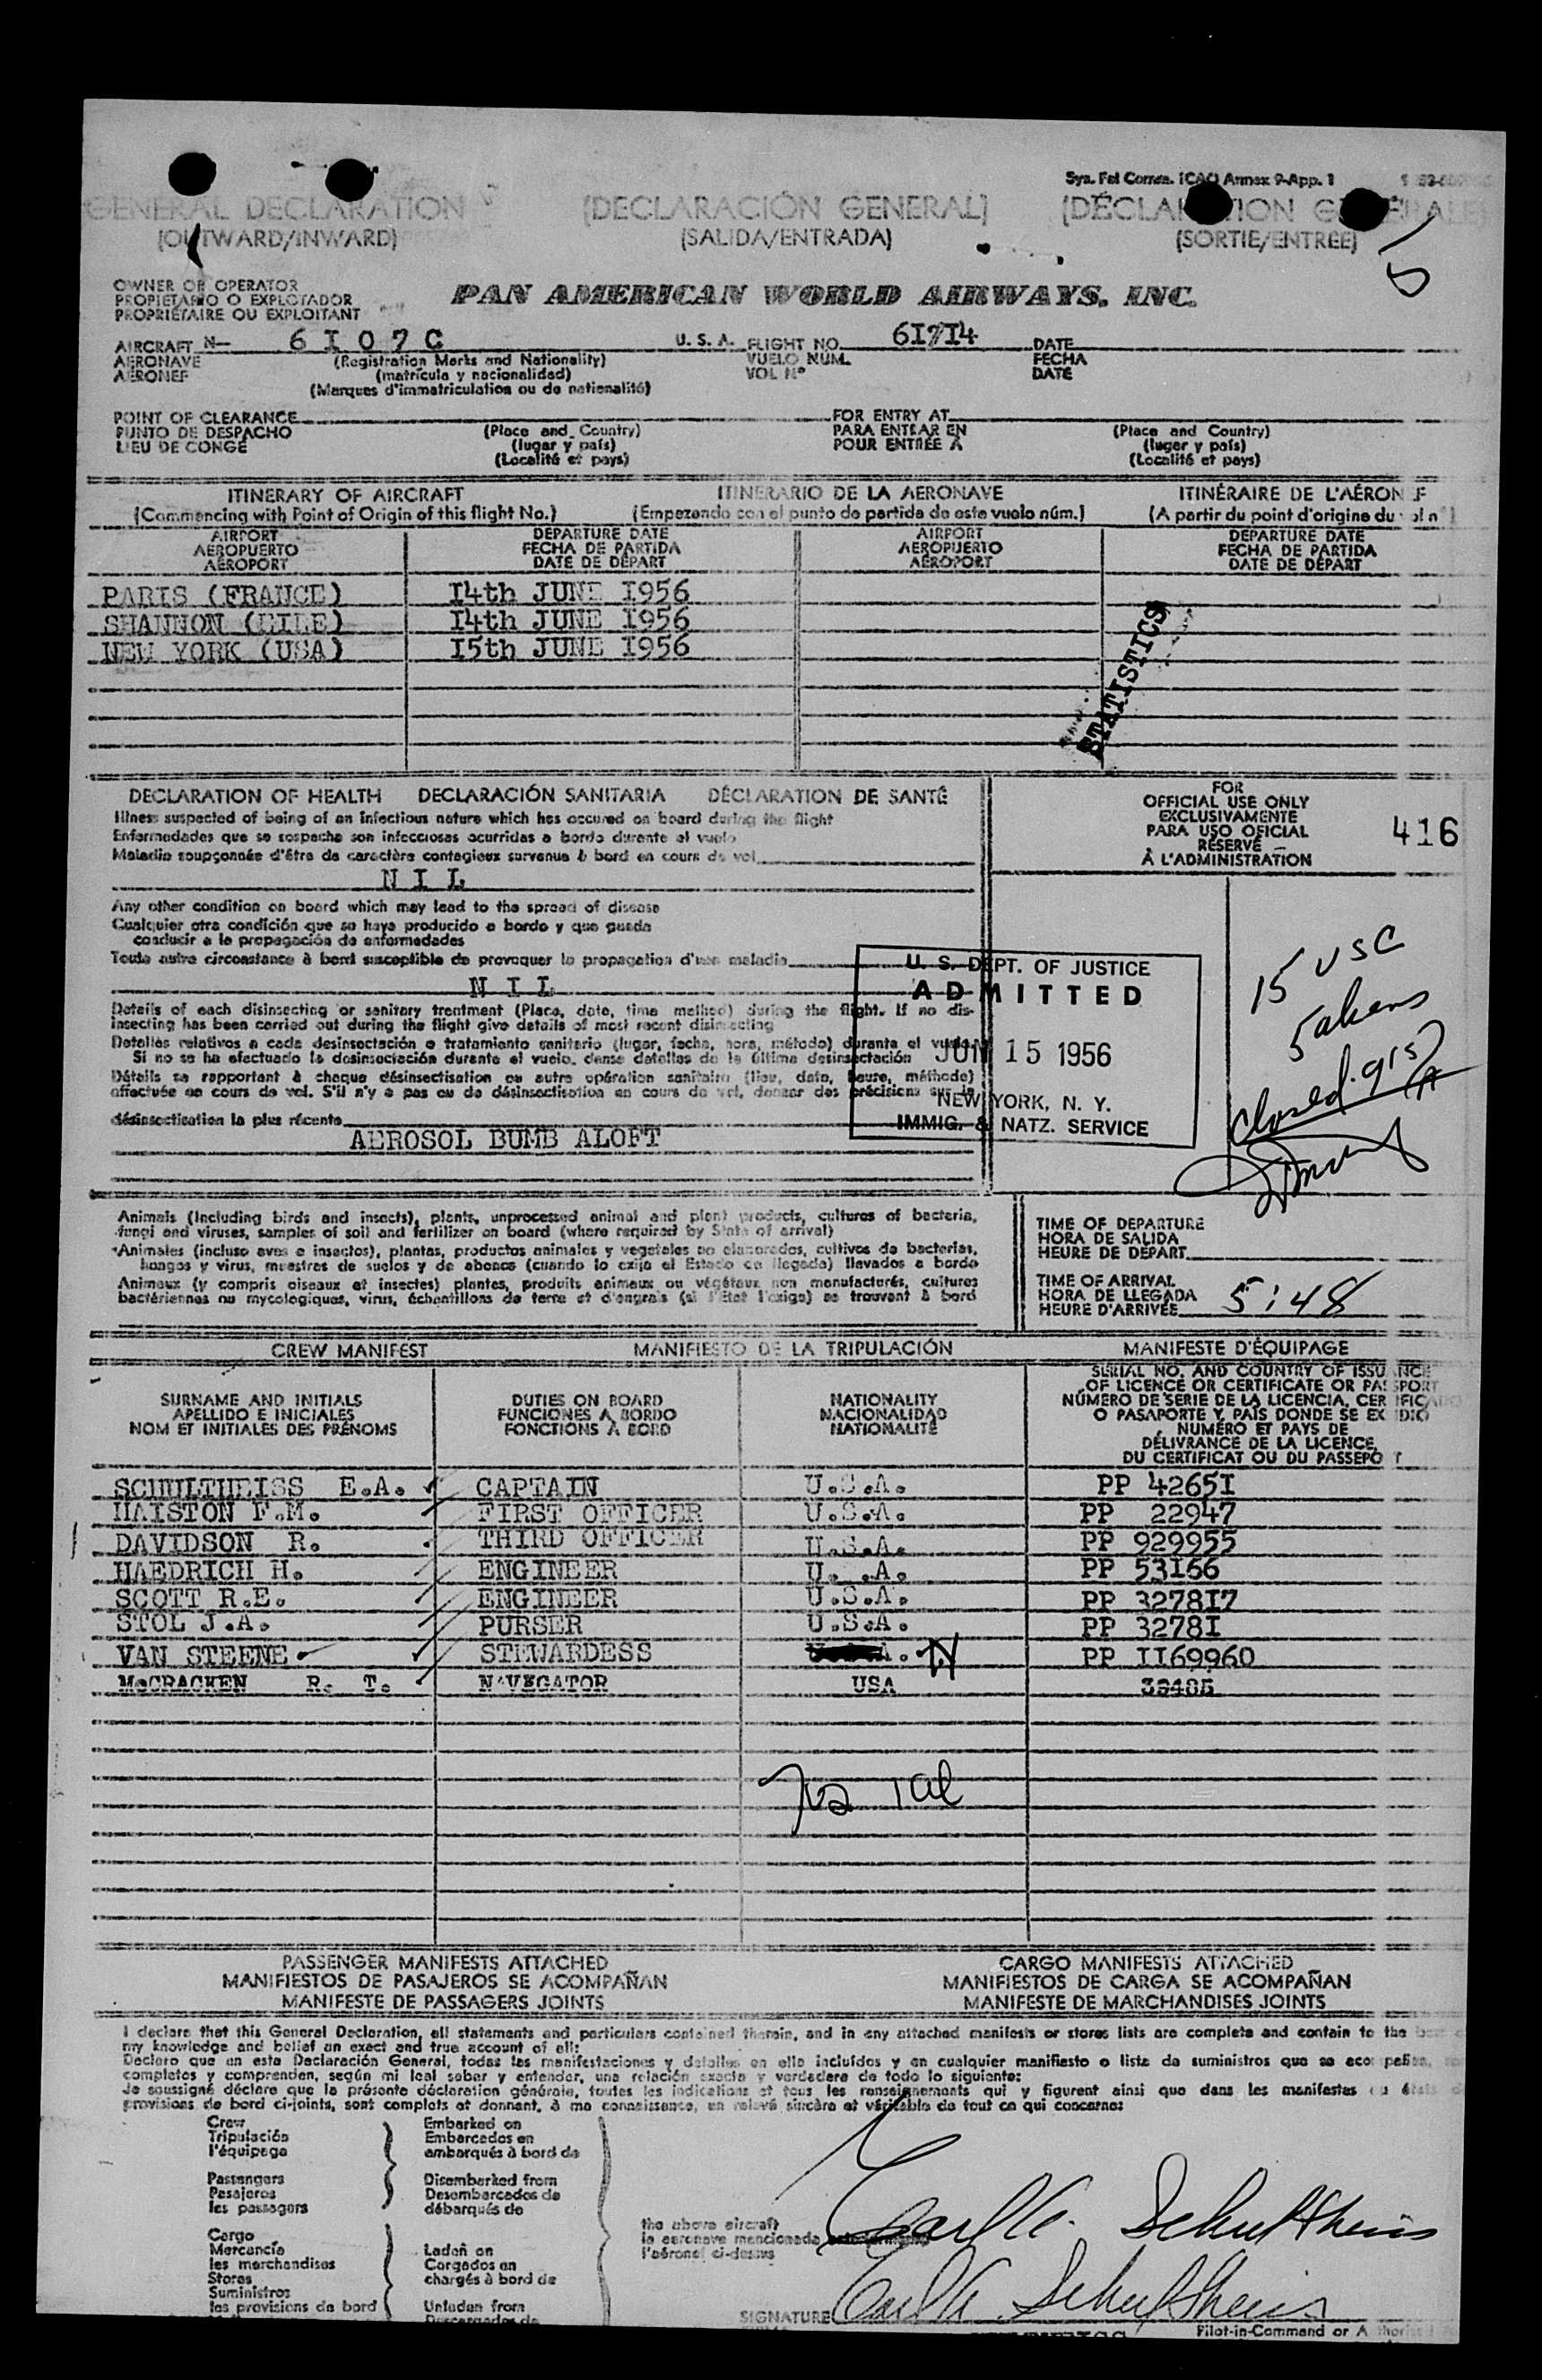 Sys. Fel Comm. ICAO Annex 9-App. 1
GENERAL DECLARATION [DECLARACIÓN GENERAL]
(OUTWARD/INWARD) (SALIDA/ENTRADA) (SORTIE/ENTREE)
5
OWNER OR OPERATOR
PROPIETARIO O EXPLOTADOR
PROPRIÉTAIRE OU EXPLOITANT
PAN AMERICAN WORLD AIRWAYS, INC.
AIRCRAFT N- 6I07C U. S. A. FLIGHT NO. 6I7I4 DATE
AERONAVE (Registration Marks and Nationality) VUELO NÚM. FECHA
AÉRONEF (matrícula y nacionalidad) VOL Nº DATE
(Marques d'immatriculation ou de nationalité)
POINT OF CLEARANCE FOR ENTRY AT
PUNTO DE DESPACHO (Place and Country) PARA ENTRAR EN (Place and Country)
LIEU DE CONGÉ (lugar y país) POUR ENTRÉE À (lugar y país)
(Localité et pays) (Localité et pays)
ITINERARY OF AIRCRAFT ITINERARIO DE LA AERONAVE ITINÉRAIRE DE L'AÉRON F
(Commencing with Point of Origin of this flight No.) (Empezando con el punto de partida de este vuelo núm.) (A partir du point d'origine du vol nº)
AIRPORT DEPARTURE DATE AIRPORT DEPARTURE DATE
AEROPUERTO FECHA DE PARTIDA AEROPUERTO FECHA DE PARTIDA
AÉROPORT DATE DE DÉPART AÉROPORT DATE DE DÉPART
PARIS (FRANCE) I4th JUNE I956
SHANNON (EILE) I4th JUNE I956
NEW YORK (USA) I5th JUNE I956
STATISTICS
DECLARATION OF HEALTH DECLARACIÓN SANITARIA DÉCLARATION DE SANTÉ
Illness suspected of being of an infectious nature which has occured on board during the flight
Enfermedades que se sospecha son infecciosas ocurridas a bordo durante el vuelo
Maladie soupçonnée d'être de caractère contagieux survenue à bord en cours de vol
NIL
FOR
OFFICIAL USE ONLY
EXCLUSIVAMENTE
PARA USO OFICIAL
RÉSERVÉ
À L'ADMINISTRATION
416
Any other condition on board which may lead to the spread of disease
Cualquier otra condición que se haya producido a bordo y que pueda
conducir a la propagación de enfermedades
Toute autre circonstance à bord susceptible de provoquer la propagation d'une maladie
NIL
Details of each disinsecting or sanitary treatment (Place, date, time method) during the flight. If no dis-
insecting has been carried out during the flight give details of most recent disinsecting
Detalles relativos a cada desinsectación o tratamiento sanitario (lugar, fecha, hora, método) durante el vuelo.
Si no se ha efectuado la desinsectación durante el vuelo, dense detalles de la última desinsectación
Détails se rapportant à chaque désinsectisation ou autre opération sanitaire (lieu, date, heure, méthode)
effectuée en cours de vol. S'il n'y a pas eu de désinsectisation en cours de vol, donner des précisions sur la
désinsectisation la plus récente
AEROSOL BUMB ALOFT
U. S. DEPT. OF JUSTICE
ADMITTED
JUN 15 1956
NEW YORK, N. Y.
IMMIG. & NATZ. SERVICE
15 USC
5 aliens
closed 915
Animals (Including birds and insects), plants, unprocessed animal and plant products, cultures of bacteria,
fungi and viruses, samples of soil and fertilizer on board (where required by State of arrival)
Animales (incluso aves e insectos), plantas, productos animales y vegetales no elaborados, cultivos de bacterias,
hongos y virus, muestras de suelos y de abonos (cuando lo exija el Estado de llegada) llevados a bordo
Animaux (y compris oiseaux et insectes) plantes, produits animaux ou végétaux non manufacturés, cultures
bactériennes ou mycologiques, virus, échantillons de terre et d'engrais (si l'État l'exige) se trouvant à bord
TIME OF DEPARTURE
HORA DE SALIDA
HEURE DE DÉPART
TIME OF ARRIVAL
HORA DE LLEGADA
HEURE D'ARRIVÉE 5:48
CREW MANIFEST MANIFIESTO DE LA TRIPULACIÓN MANIFESTE D'ÉQUIPAGE
SURNAME AND INITIALS
APELLIDO E INICIALES
NOM ET INITIALES DES PRÉNOMS
DUTIES ON BOARD
FUNCIONES A BORDO
FONCTIONS À BORD
NATIONALITY
NACIONALIDAD
NATIONALITÉ
SERIAL NO. AND COUNTRY OF ISSUANCE
OF LICENCE OR CERTIFICATE OR PASSPORT
NÚMERO DE SERIE DE LA LICENCIA, CERTIFICADO
O PASAPORTE Y PAÍS DONDE SE EXPIDIÓ
NUMÉRO ET PAYS DE
DÉLIVRANCE DE LA LICENCE,
DU CERTIFICAT OU DU PASSEPORT
SCHULTHEISS E.A. CAPTAIN U.S.A. PP 4265I
HAISTON F.M. FIRST OFFICER U.S.A. PP 22947
DAVIDSON R. THIRD OFFICER U.S.A. PP 929955
HAEDRICH H. ENGINEER U. .A. PP 53I66
SCOTT R.E. ENGINEER U.S.A. PP 3278I7
STOL J.A. PURSER U.S.A. PP 3278I
VAN STEENE STEWARDESS N PP II69960
McCRACKEN R. T. NAVEGATOR USA
PASSENGER MANIFESTS ATTACHED CARGO MANIFESTS ATTACHED
MANIFIESTOS DE PASAJEROS SE ACOMPAÑAN MANIFIESTOS DE CARGA SE ACOMPAÑAN
MANIFESTE DE PASSAGERS JOINTS MANIFESTE DE MARCHANDISES JOINTS
I declare that this General Declaration, all statements and particulars contained therein, and in any attached manifests or stores lists are complete and contain to the
my knowledge and belief an exact and true account of all:
Declaro que en esta Declaración General, todas las manifestaciones y detalles en ella incluídos y en cualquier manifiesto o lista de suministros que se acompañan,
completos y comprenden, según mi leal saber y entender, una relación exacta y verdadera de todo lo siguiente:
Je soussigné déclare que la présente déclaration générale, toutes les indications et tous les renseignements qui y figurent ainsi que dans les manifestes ou états
provisions de bord ci-joints, sont complets et donnent, à ma connaissance, un relevé sincère et véritable de tout ce qui concerne:
Crew Embarked on
Tripulación Embarcados en
l'équipage embarqués à bord de
Passengers Disembarked from
Pasajeros Desembarcados de
les passagers débarqués de
Cargo
Mercancía Laden on
les marchandises Cargados en
Stores chargés à bord de
Suministros
les provisions de bord Unladen from
Descargados de
the above aircraft
la aeronave mencionada
l'aéronef ci-dessus
Earl A. Schultheiss
SIGNATURE Earl A. Schultheiss
Pilot-in-Command or A